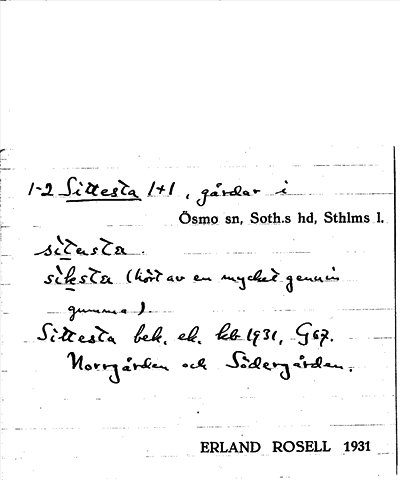 1-2 Sittesta 1+1, gårdar i
Ösmo sn, Soth.s hd, Sthlms l.
sitasta.
siksta (hört av en mycket genuin
gumma).
Sittesta bek. ek. kb 1931, G67.
Norrgården och Södergården.
ERLAND ROSELL 1931